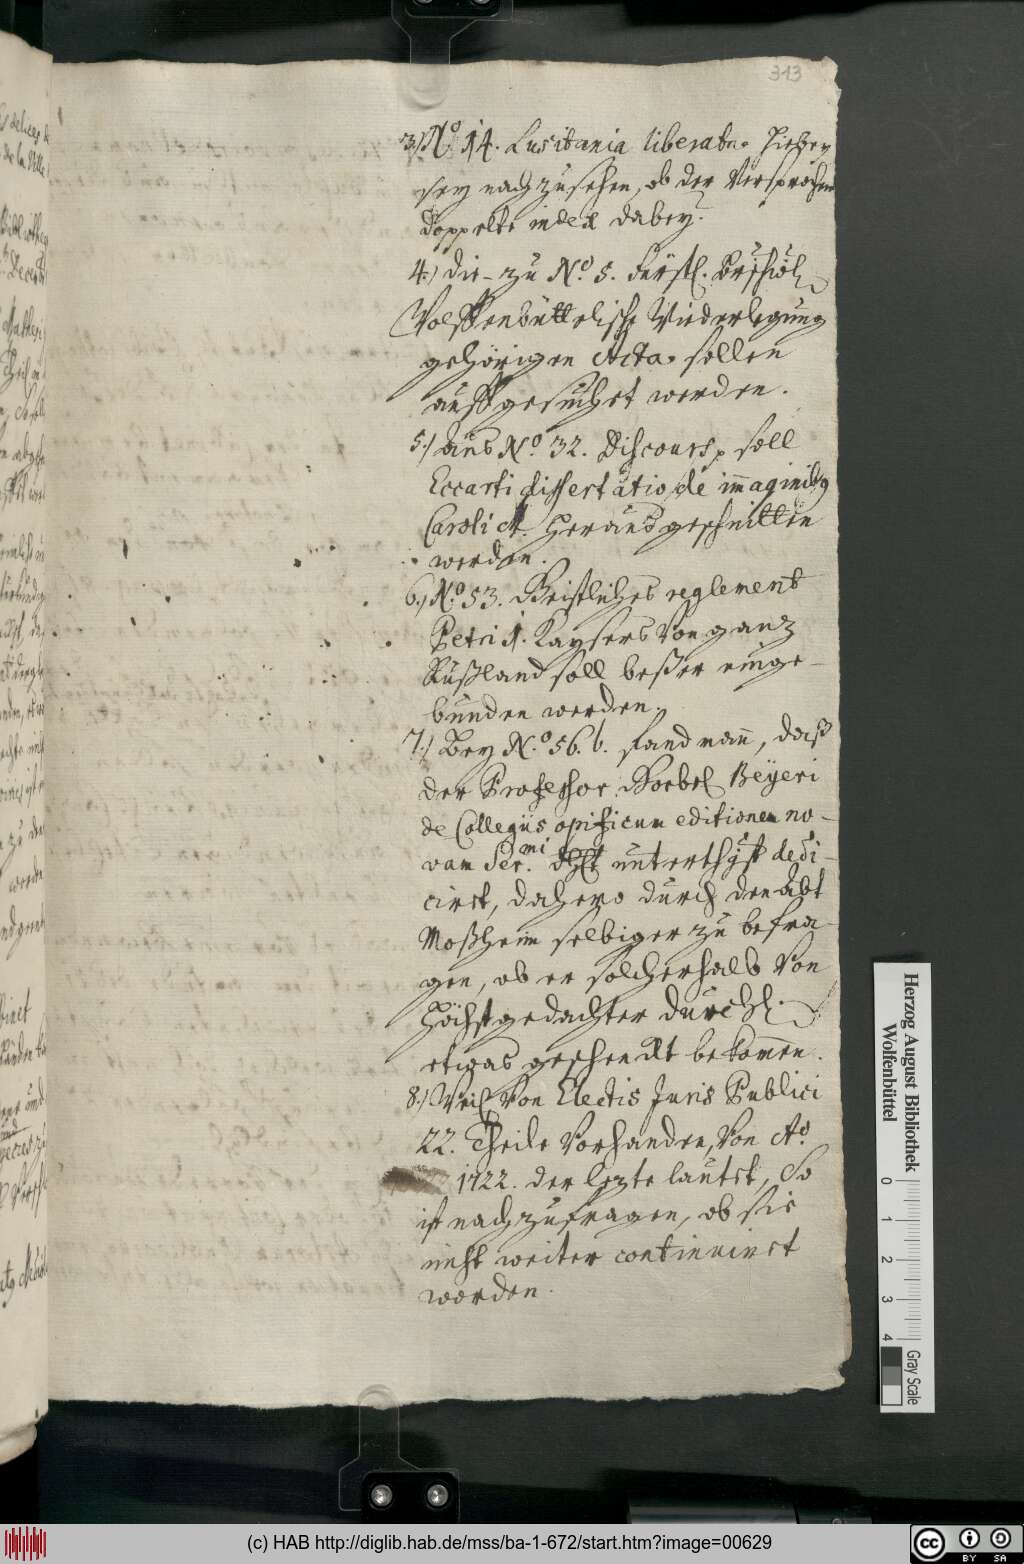 313
3.) No. 14. Lusitania liberata. Hiebey
sey nachzusehen, ob der Versprochene
doppelte index dabey?
4.) die zu No. 5. Fürstl. Brschwl.
Wolffenbüttelische Wiederlegung
gehörigen Acta. sollen
auffgesuchet werden.
5.) aus No. 32. Discours, soll
Eccarti dissertatio de imaginibg
Caroli M. herausgeschnitten
werden.
6.) No. 53. Geistliches reglement
Petri 1. Kaysers Von ganz
Rußland soll beßer einge-
bunden werden.
7.) Bey No. 56. b. fand man, daß
der Professor Goebel Beÿeri
de Collegiis opificum editionem no-
vam Ser.mi unterthgst dedi-
ciret, dahero durch den Abt
Moßheim selbiger zu befra-
gen, ob er solcherhalb Von
Höchstgedachter Durchl.
etwas geschenckt bekommen.
8.) Weil Von Electis Juris Publici
22. Theile Vorhanden, Von Ao.
1722. der lezte lautet, So
ist nachzufragen, ob sie
nicht weiter continuiret
worden.
Herzog August Bibliothek
Wolfenbüttel
0 1 2 3 4
Gray Scale
(c) HAB http://diglib.hab.de/mss/ba-1-672/start.htm?image=00629
cc BY SA